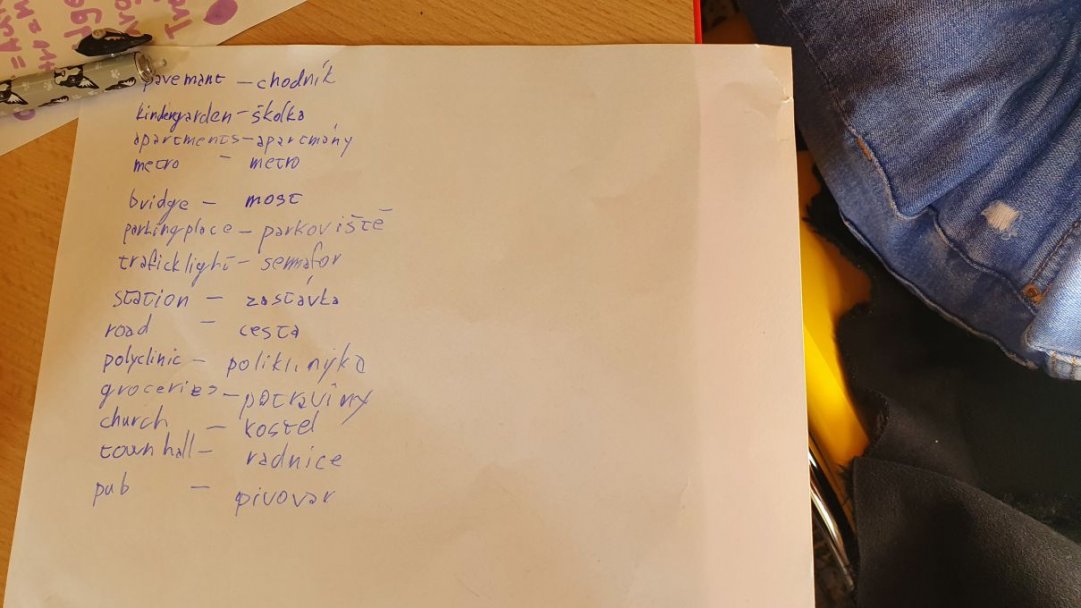 pavemant - chodník
kindergarden - školka
apartments - apartmány
metro - metro
bridge - most
parking place - parkoviště
trafick light - semafor
station - zastávka
road - cesta
polyclinic - poliklinyka
groceries - potraviny
church - kostel
town hall - radnice
pub - pivovar